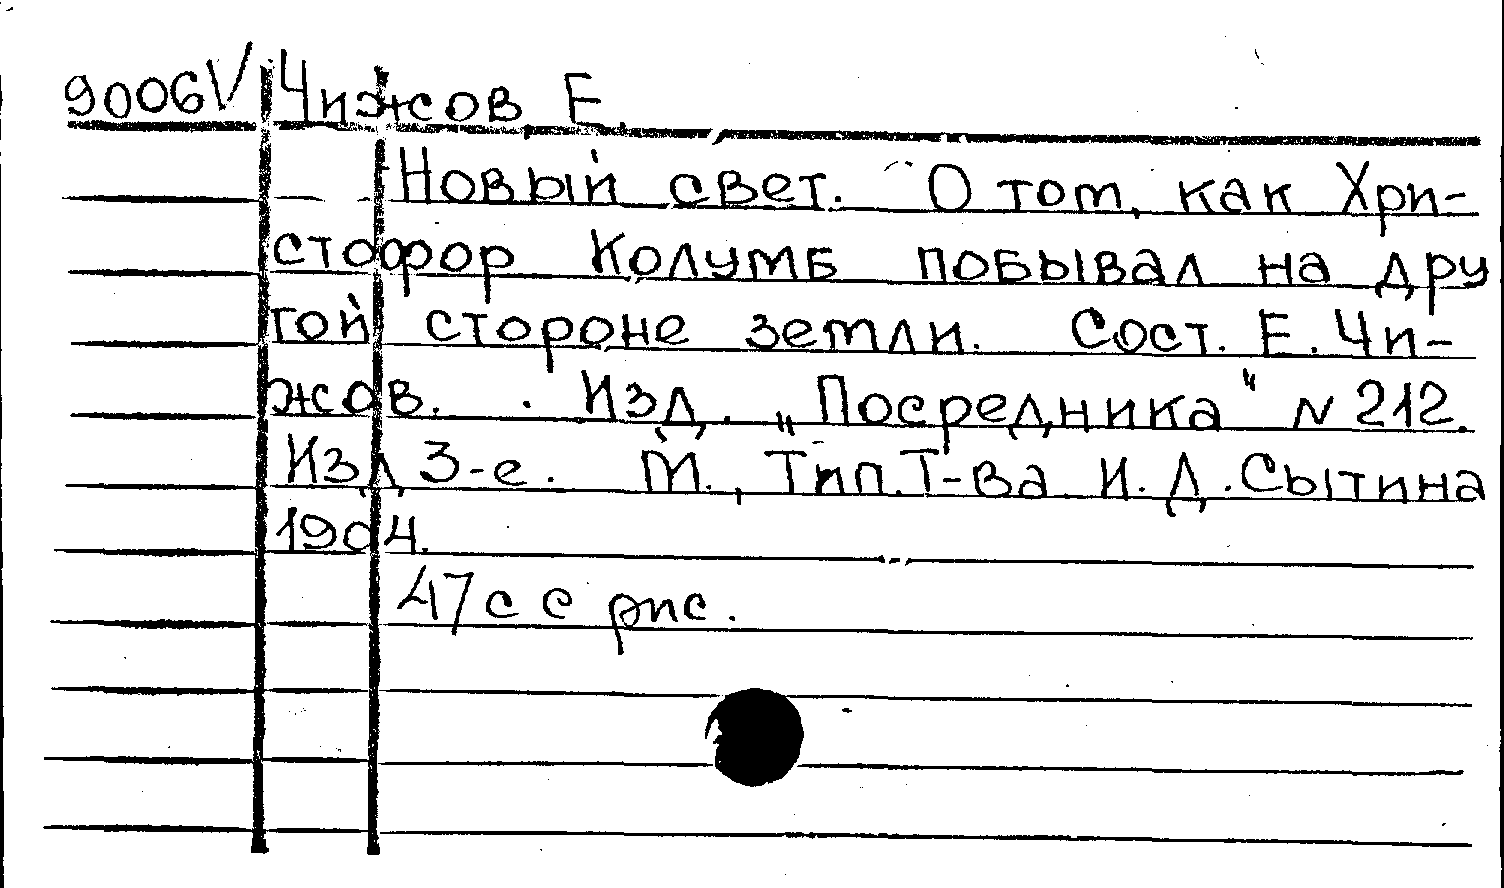 9006V Чижов Е.
Новый свет. О том, как Хри-
стофор Колумб побывал на дру
гой стороне земли. Сост. Е. Чи-
жов. Изд. „Посредника“ N 212.
Изд 3-е. М., Тип. Т-ва И. Д. Сытина
1904.
47 с с рис.